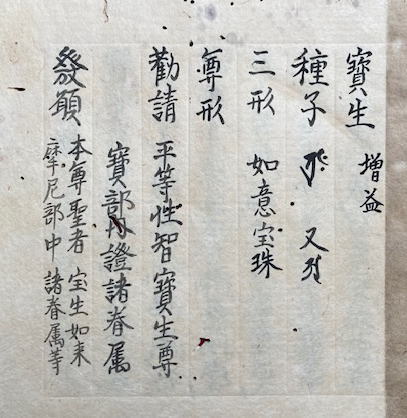 寶生 増益
種子 又
三形 如意宝珠
尊形
勸請 平等性智寶生尊
寶部内證諸眷属
發願 本尊聖者 宝生如来
摩尼部中 諸眷属等